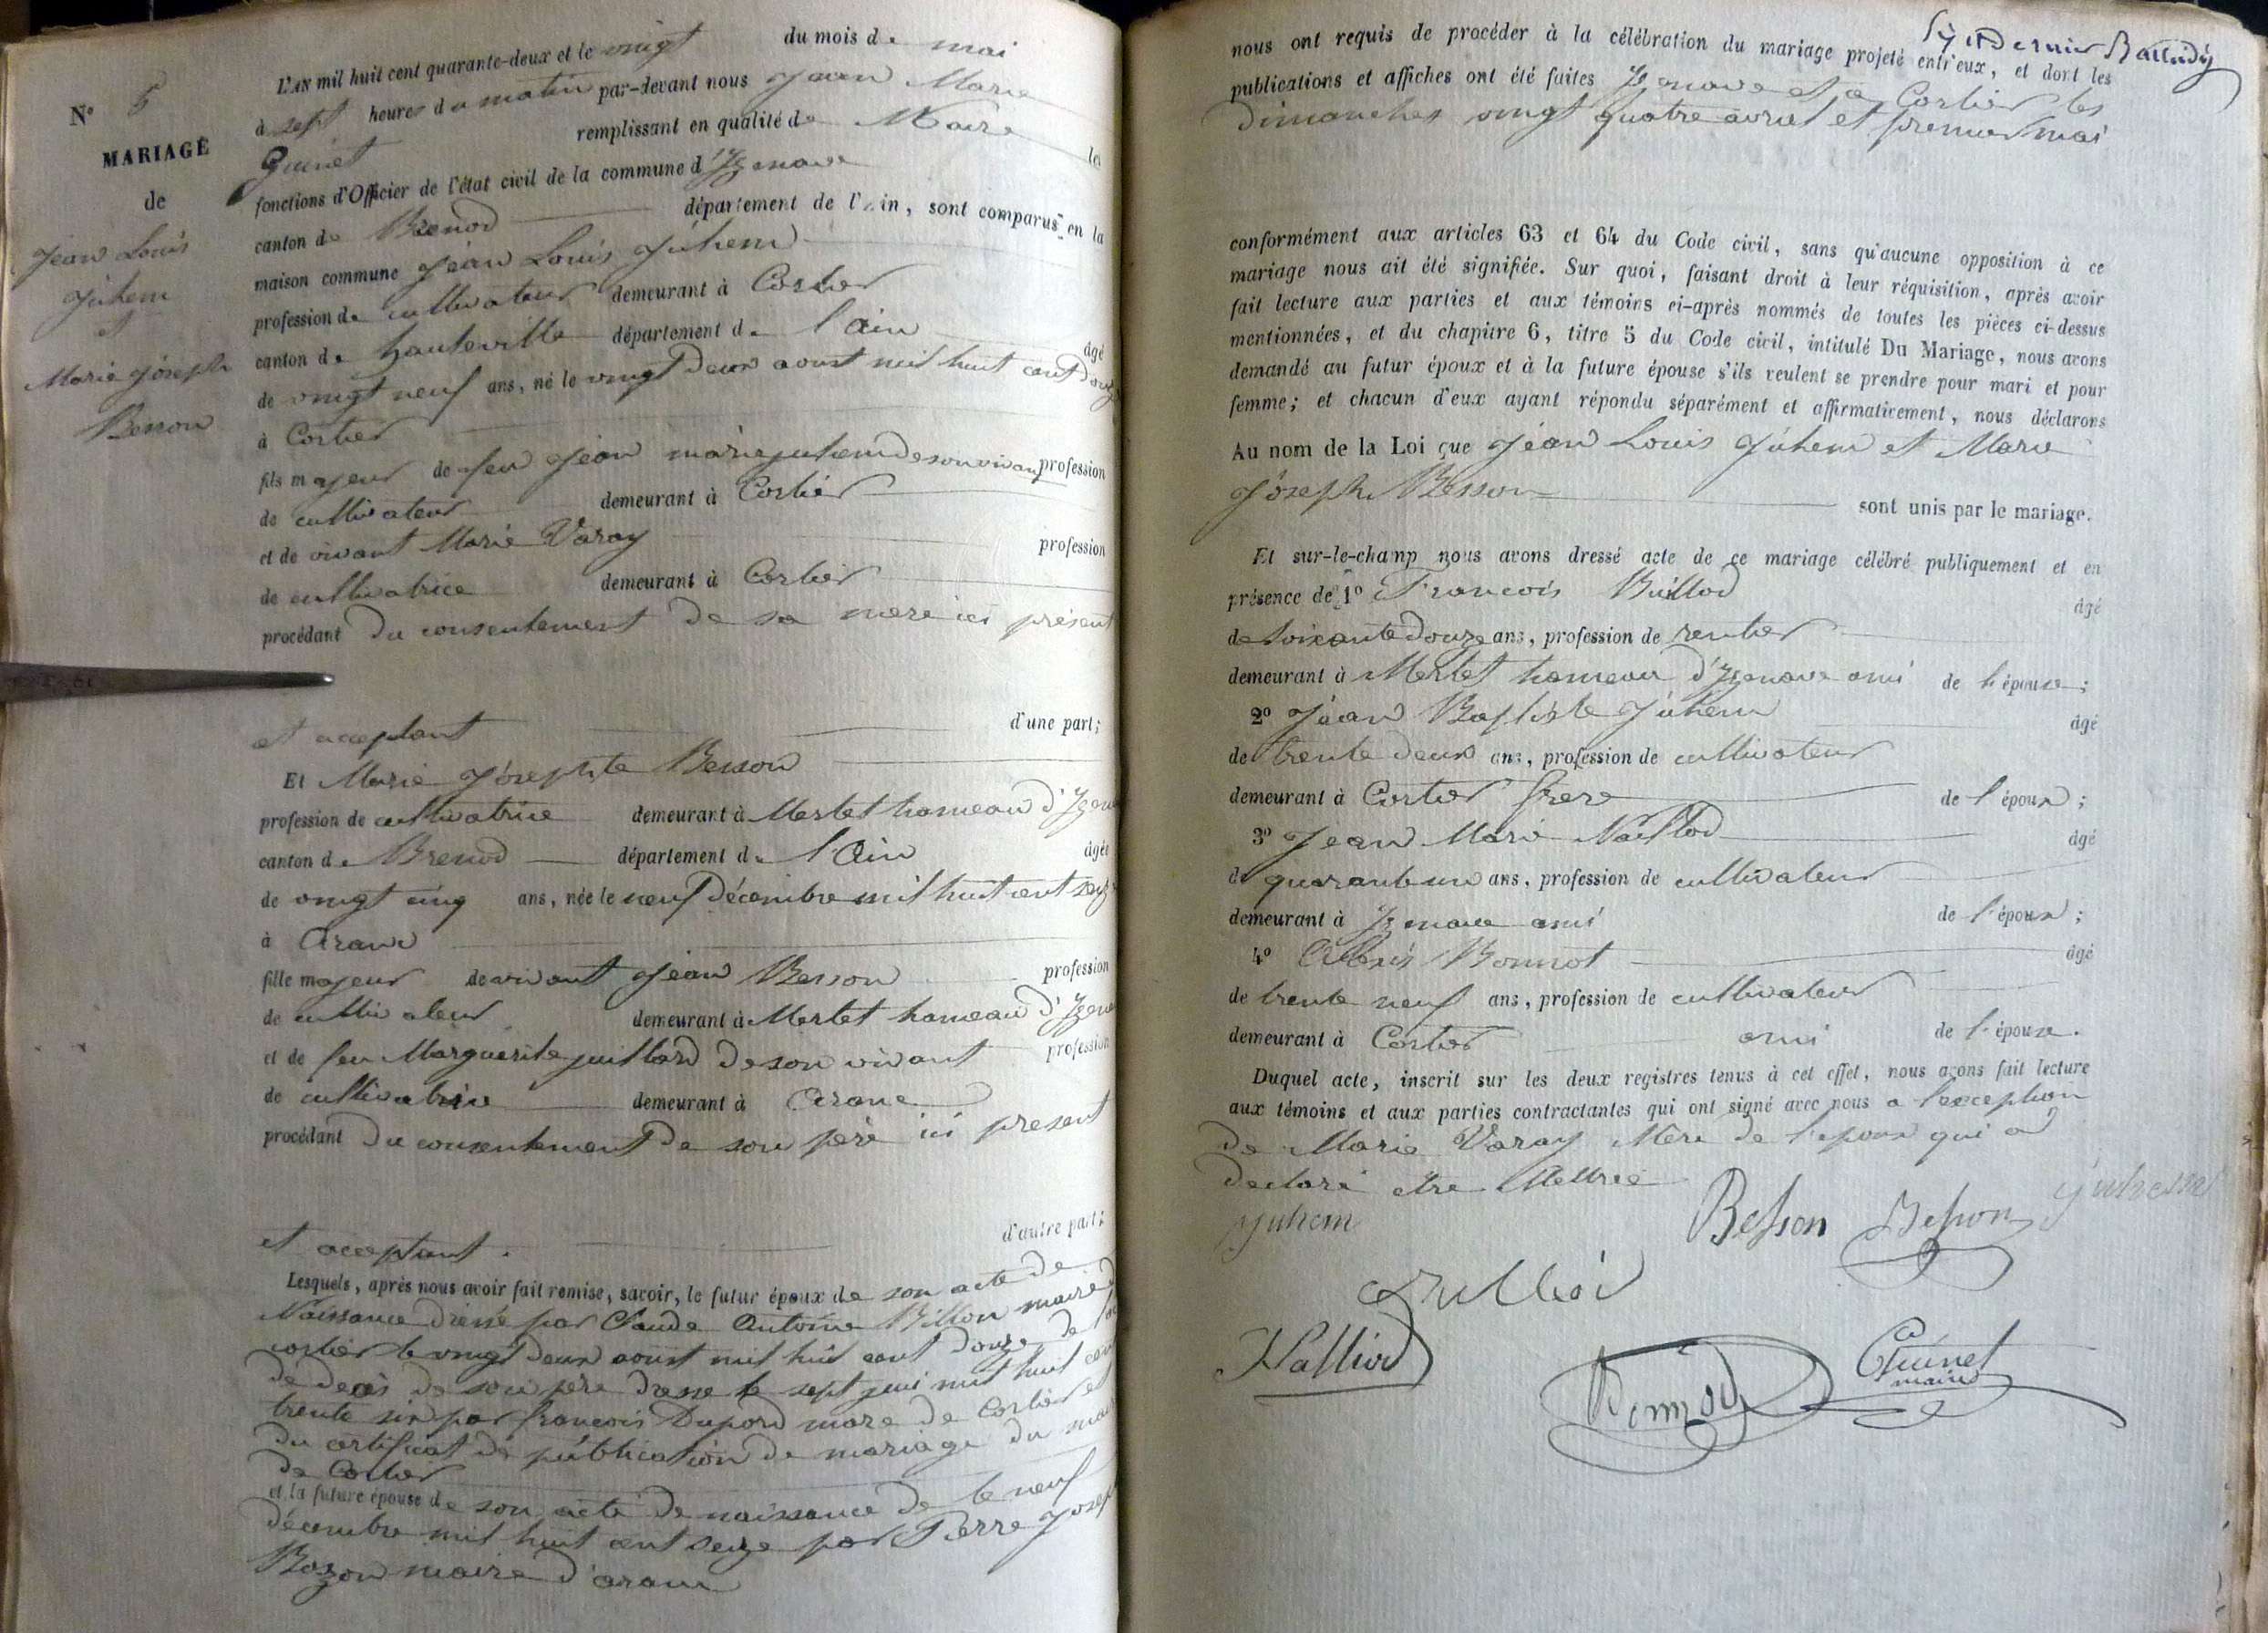 N° 5
MARIAGE
de
Jean Louis
Juhem
et
Marie Joseph
Besson
L'AN mil huit cent quarante-deux et le vingt du mois de mai
à sept heures du matin par-devant nous Jean Marie
Guinet remplissant en qualité de Maire les
fonctions d'Officier de l'état civil de la commune d'Izenave
canton de Brenod département de l'Ain, sont comparus en la
maison commune Jean Louis Juhem
profession de cultivateur demeurant à Corlier
canton de hauteville département de l'Ain âgé
de vingt neuf ans, né le vingt deux aoust mil huit cent douze
à Corlier
fils majeur de feu Jean marie juhem de son vivant profession
de cultivateur demeurant à Corlier
et de vivant Marie Varay profession
de cultivatrice demeurant à Corlier
procédant du consentement de sa mere ici présent
et acceptant d'une part;
Et Marie Josephte Besson
profession de cultivatrice demeurant à Merlet hameau d'Izen
canton de Brenod département de l'Ain âgée
de vingt cinq ans, née le neuf décembre mil huit cent seize
à Aranc
fille majeur de vivant Jean Besson profession
de cultivateur demeurant à Merlet hameau d'Izen
et de feu Marguerite juillard de son vivant profession
de cultivatrice demeurant à Aranc
procédant du consentement de son père ici present
et acceptant. d'autre part;
Lesquels, après nous avoir fait remise, savoir, le futur époux de son acte de
Naissance dréssé par Claude Antoine Billon maire
corlier le vingt deux aoust mil huit cent douze de
de décès de son père dresse le sept juin mil huit cent
trente six par françois Dupord mare de Corlier et
du certificat de publication de mariage du
de Corlier
et la future épouse de son acte de naissance de le neuf
décembre mil huit cent seize par Pierre Josep
Bozon maire d'aranc
nous ont requis de procéder à la célébration du mariage projeté entr'eux, et dont les
publications et affiches ont été faites Izenave et a Corlier les
dimanches vingt quatre avril et premier mai
conformément aux articles 63 et 64 du Code civil, sans qu'aucune opposition à ce
mariage nous ait été signifiée. Sur quoi, faisant droit à leur réquisition, après avoir
fait lecture aux parties et aux témoins ci-après nommés de toutes les pièces ci-dessus
mentionnées, et du chapitre 6, titre 5 du Code civil, intitulé Du Mariage, nous avons
demandé au futur époux et à la future épouse s'ils veulent se prendre pour mari et pour
femme; et chacun d'eux ayant répondu séparément et affirmativement, nous déclarons
Au nom de la Loi que Jean Louis Juhem et Marie
Joseph Besson sont unis par le mariage.
Et sur-le-champ nous avons dressé acte de ce mariage célébré publiquement et en
présence de 1° François Buillod âgé
de soixante douze ans, profession de rentier
demeurant à Merlet hameau d'Izenave ami de l'épouse;
2° Jean Baptiste Juhem âgé
de trente deux ans, profession de cultivateur
demeurant à Corlier frere de l'époux;
3° Jean Marie Nallod âgé
de quarante un ans, profession de cultivateur
demeurant à Izenave ami de l'époux;
4° Bonnot âgé
de trente neuf ans, profession de cultivateur
demeurant à Corlier ami de l'épouse.
Duquel acte, inscrit sur les deux registres tenus à cet effet, nous avons fait lecture
aux témoins et aux parties contractantes qui ont signé avec nous a l'exception
de Marie Varay Mère de l'epoux qui a
declaré etre illettrée
juhem Besson Besson juhem
Guinet
maire